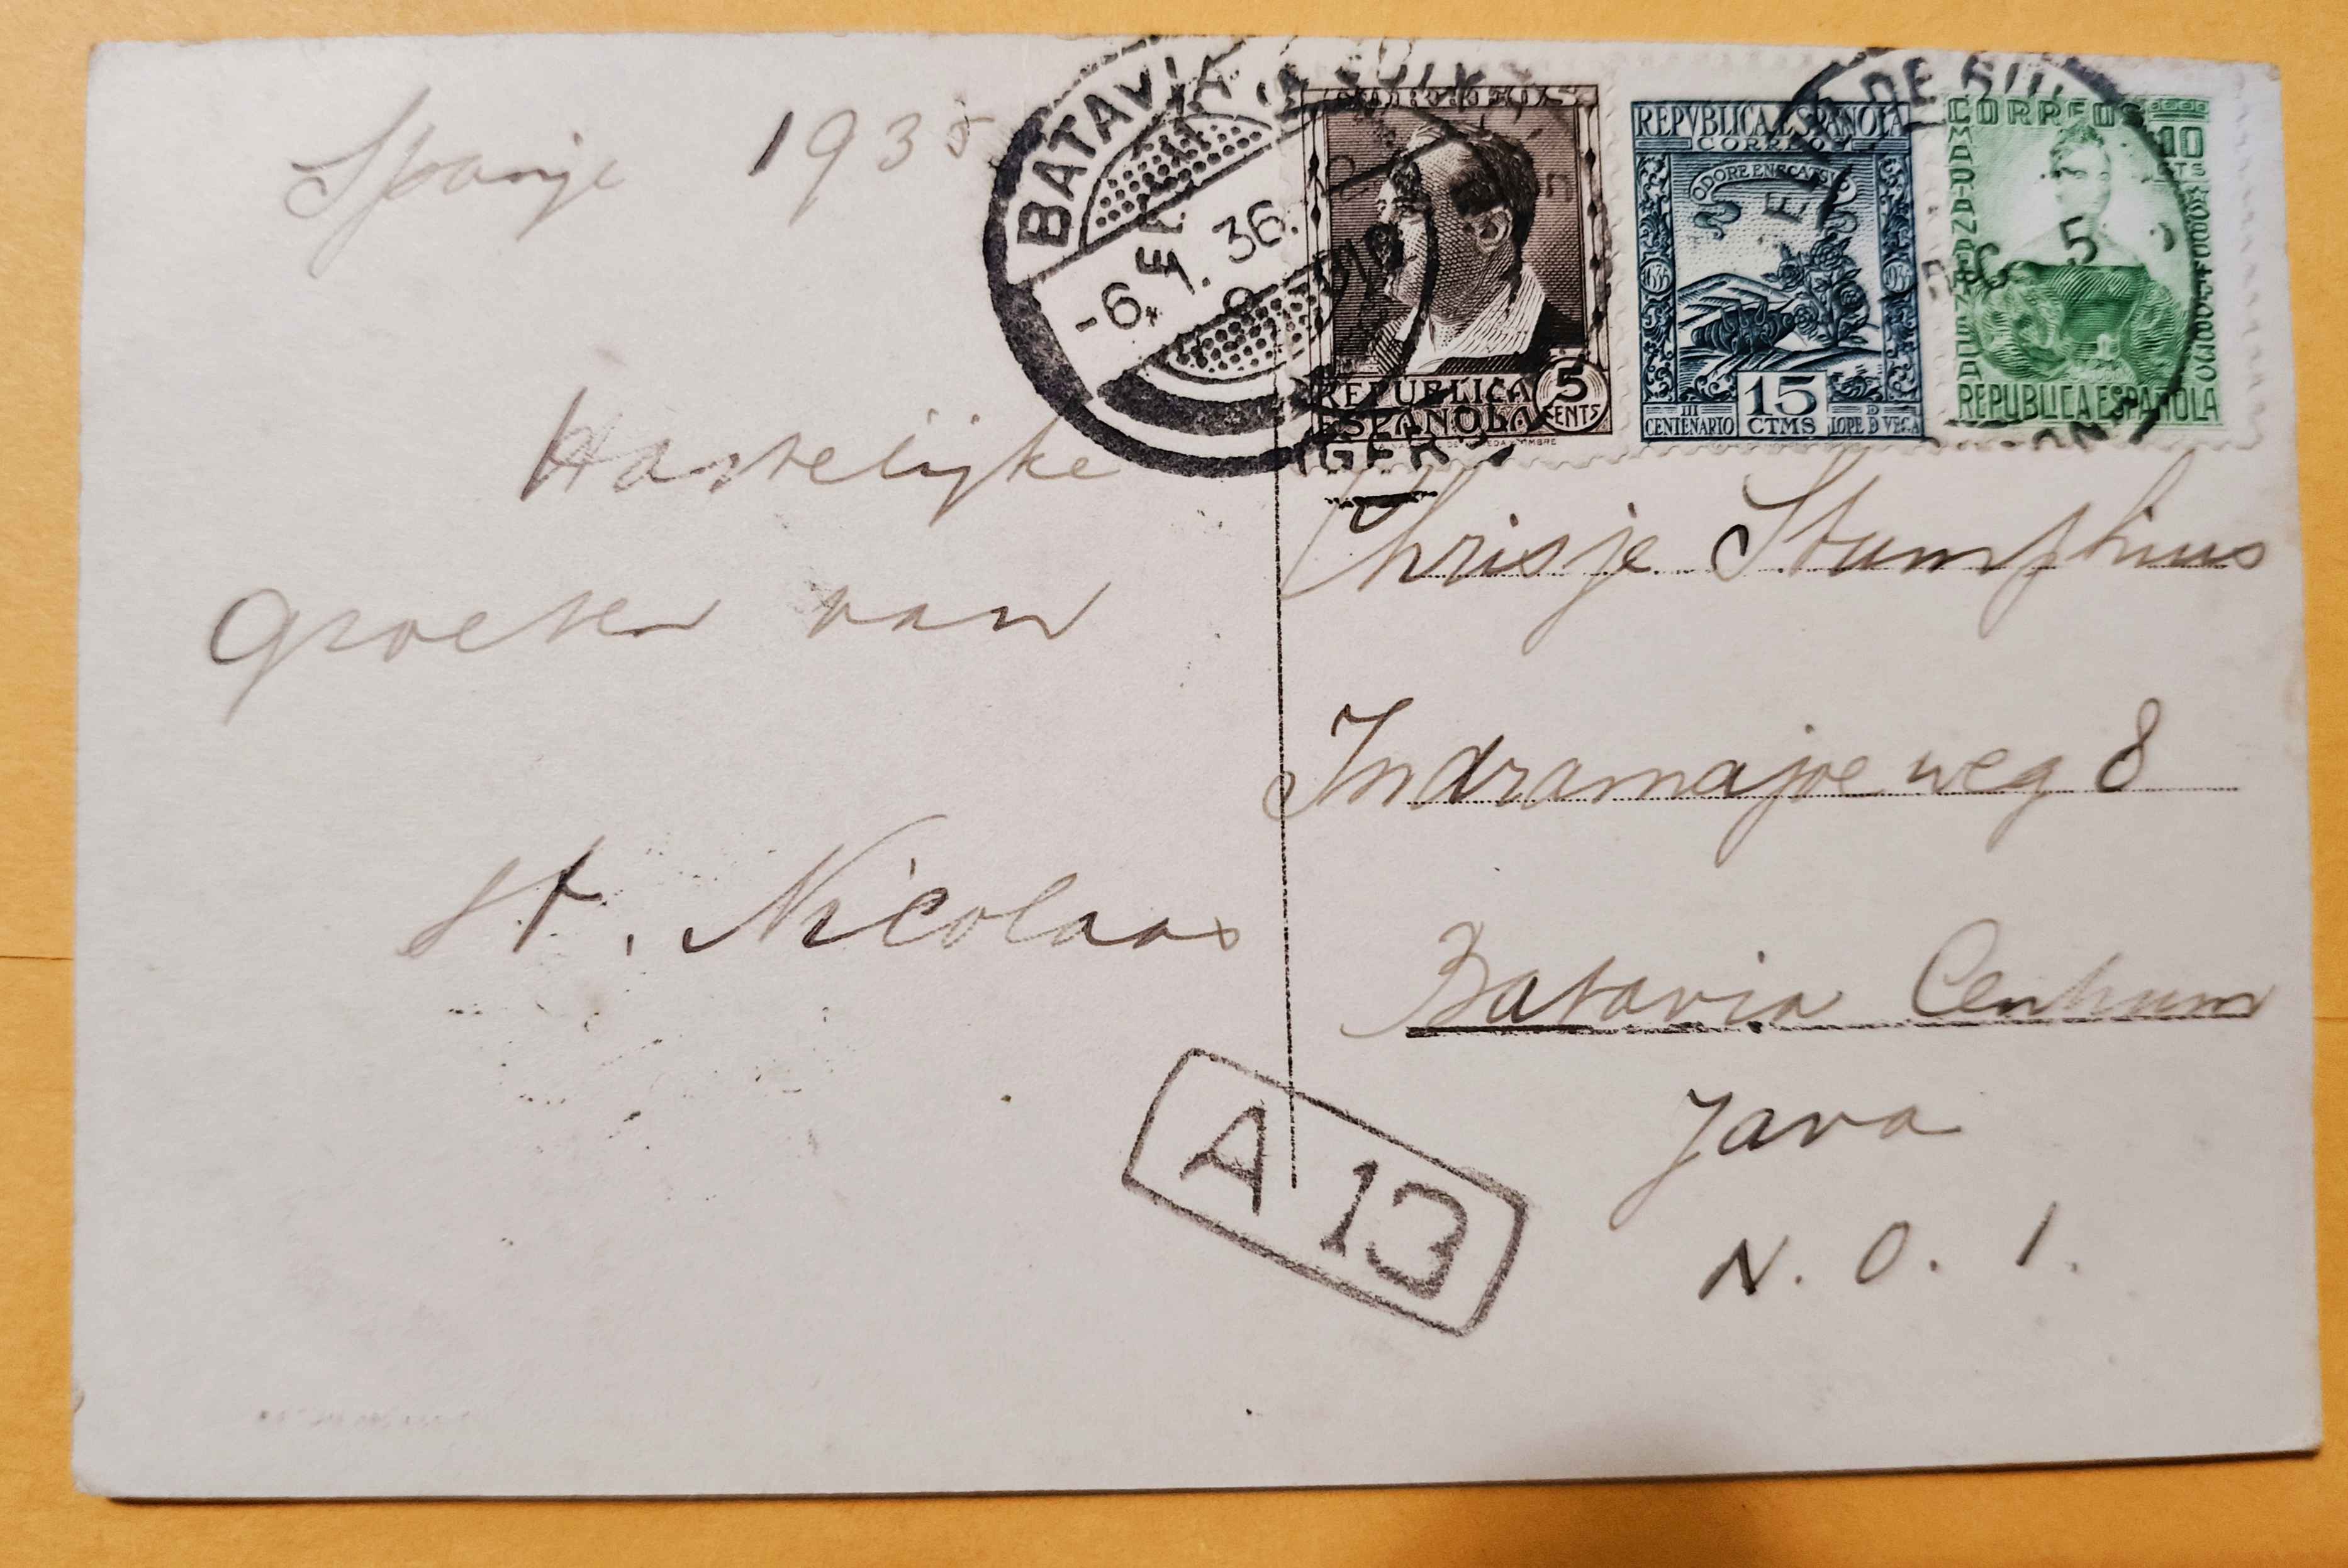 Spanje 1935
Hartelijke
groeten van
St. Nicolaas
BATAVIA
-6.1.36.
CORREOS
REPUBLICA
ESPAÑOLA
5
CENTS
REPVBLICA ESPAÑOLA
CORREOS
ODORE ENECAT SVO
1635
1935
III
CENTENARIO
15
CTMS
LOPE D VEGA
CORREOS
10
CTS
MARIANA PINEDA
REPUBLICA ESPAÑOLA
5
Chrisje Stumphius
Indramajoeweg 8
Batavia Centrum
Java
N. O. I.
A 13